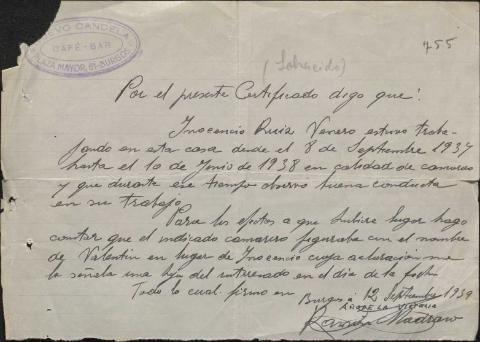 NUEVO CANDELA
CAFÉ-BAR
PLAZA MAYOR, 61-BURGOS
755
(Sobreseido)
Por el presente Certificado digo que:
Inocencio Ruiz Venero estuvo traba-
jando en esta casa desde el 8 de Septiembre 1937
hasta el 10 de Junio de 1938 en calidad de camarero
y que durante ese tiempo observo buena conducta
en su trabajo.
Para los efectos a que hubiere lugar hago
contar que el indicado camarero figuraba con el nombre
de Valentin en lugar de Inocencio cuya aclaracion me
la señala una hija del interesado en el dia de la fecha
Todo lo cual firmo en Burgos á 12 Septiembre 1939
AÑO DE LA VICTORIA
Madrazo